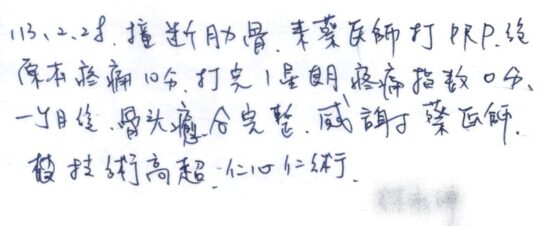 113.2.28.撞斷肋骨.來葉医師打PRP.從
原本疼痛10分.打完1星期.疼痛指数0分.
一個月後.骨头癒合完整.感謝葉医師.
技術高超.仁心仁術.